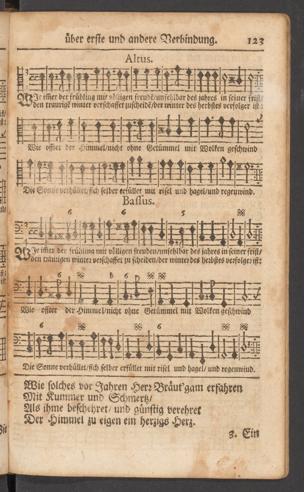 über erste und andere Verbindung. 123
Altus.
WJe iffter der frühling mit völligen freuden/unfehlbar des jahres in seiner frist/
den traurigē winter verschaffet zu scheidē/der winter des herbstes verfolger ist:
Wie offter der Himmel/nicht ohne Getümmel mit Wolken geschwind
Die Sonne verhüllet/sich selber erfüllet mit risel und hagel/und regenwind.
Bassus.
6 6 5
WJe iffter der frühling mit völligen freuden/unfehlbar des jahres in seiner frist/
den traurigen winter verschaffet zu scheiden/der winter des herbstes verfolger ist:
Wie offter der Himmel/nicht ohne Getümmel mit Wolken geschwind
Die Sonne verhüllet/sich selber erfüllet mit risel und hagel/ und regenwind.
Wie solches vor Jahren Herz Bräut'gam erfahren
Mit Kummer und Schmertz/
Als ihme beschehret/ und günstig verehret
Der Himmel zu eigen ein herzigs Herz.
3. Ein